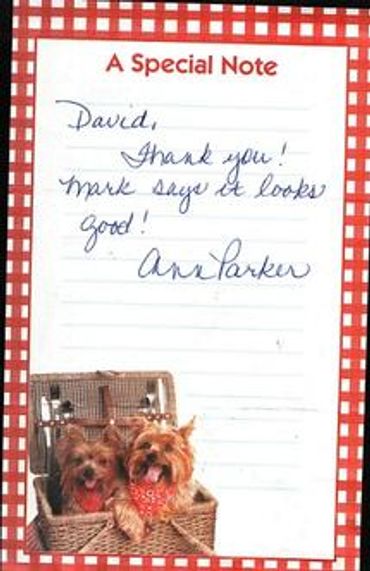 A Special Note
David,
Thank you!
Mark says it looks
good!
Ann Parker